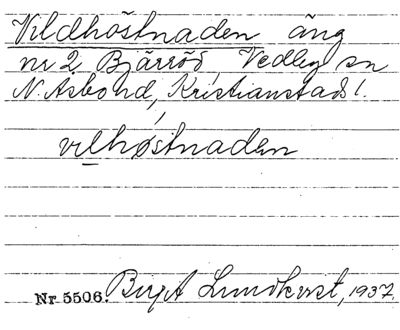 Vildhöstnaden äng
nr 2 Bjärröd Vedby sn
N. Åsbo hd, Kristianstads l.
vilhöstnaden
Nr 5506. Birgit Lundkvist, 1937.